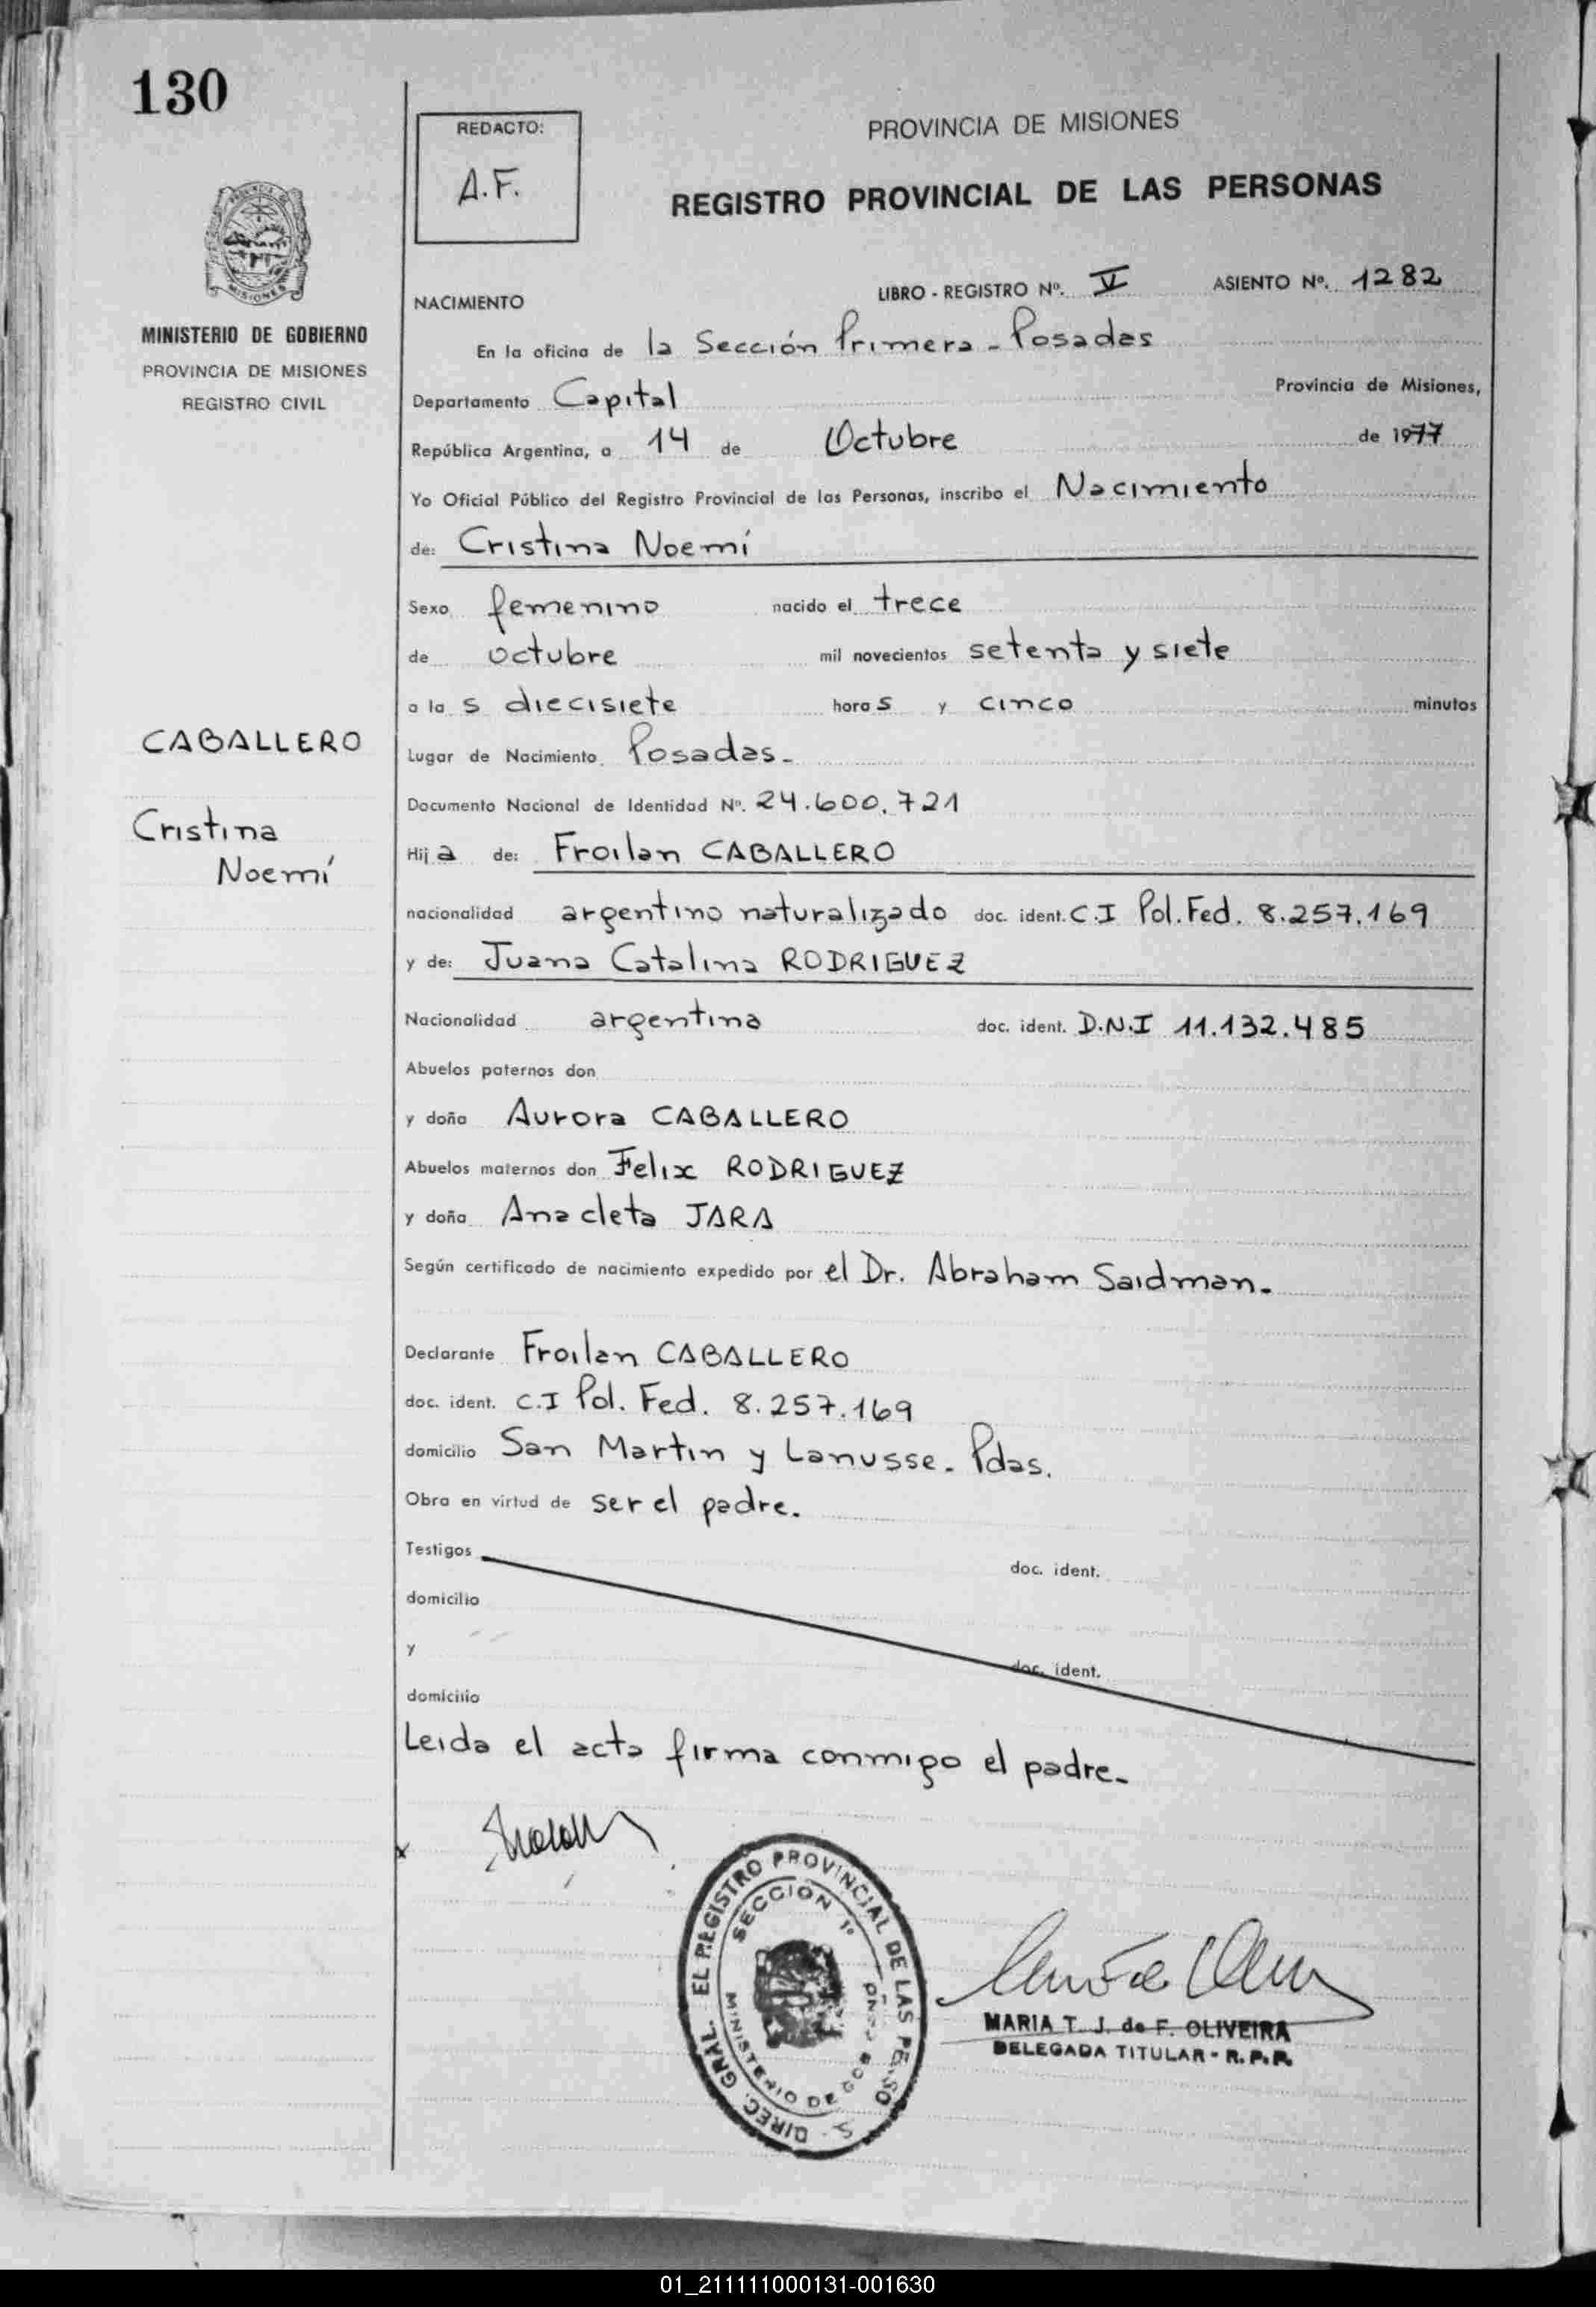 130
REDACTO:
A.F.
PROVINCIA DE MISIONES
REGISTRO PROVINCIAL DE LAS PERSONAS
MISIONES
MINISTERIO DE GOBIERNO
PROVINCIA DE MISIONES
REGISTRO CIVIL
NACIMIENTO
LIBRO - REGISTRO Nº. V ASIENTO Nº. 1282
En la oficina de la Sección Primera - Posadas
Departamento Capital Provincia de Misiones,
República Argentina, a 14 de Octubre de 1977
Yo Oficial Público del Registro Provincial de las Personas, inscribo el Nacimiento
de: Cristina Noemí
Sexo femenino nacido el trece
de octubre mil novecientos setenta y siete
a la s diecisiete hora s y cinco minutos
CABALLERO
Cristina
Noemí
Lugar de Nacimiento Posadas.-
Documento Nacional de Identidad Nº. 24.600.721
Hij a de: Froilan CABALLERO
nacionalidad argentino naturalizado doc. ident. C.I Pol. Fed. 8.257.169
y de: Juana Catalina RODRIGUEZ
Nacionalidad argentina doc. ident. D.N.I 11.132.485
Abuelos paternos don
y doña Aurora CABALLERO
Abuelos maternos don Felix RODRIGUEZ
y doña Anacleta JARA
Según certificado de nacimiento expedido por el Dr. Abraham Saidman.-
Declarante Froilan CABALLERO
doc. ident. C.I Pol. Fed. 8.257.169
domicilio San Martin y Lanusse. Pdas.
Obra en virtud de ser el padre.
Testigos doc. ident.
domicilio
y doc. ident.
domicilio
Leida el acta firma conmigo el padre.-
x
DIREC. GRAL. EL REGISTRO PROVINCIAL DE LAS PERSO S
SECCION 1º
MINISTERIO DE GOBIERNO
MARIA T. J. de F. OLIVEIRA
DELEGADA TITULAR - R.P.P.
01_211111000131-001630